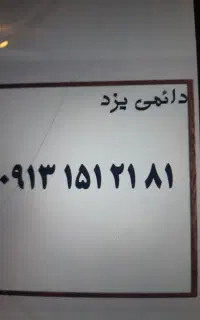 دائمی یزد
۰۹۱۳ ۱۵۱ ۲۱ ۸۱